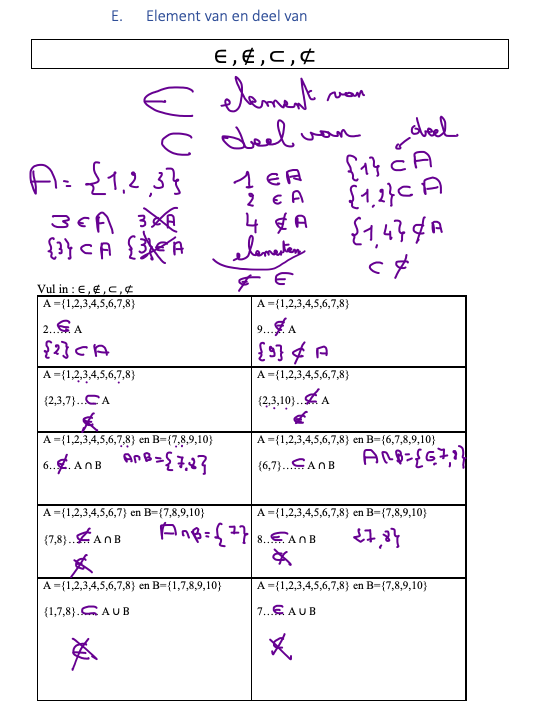 E. Element van en deel van
∈ , ∉ , ⊂ , ⊄
∈ element van
⊂ deel van
deel
A = {1,2,3}
1 ∈ A
{1} ⊂ A
2 ∈ A
{1,2} ⊂ A
3 ∈ A
4 ∉ A
{1,4} ⊄ A
{3} ⊂ A
elementen
⊂ ⊄
∉ ∈
Vul in : ∈ , ∉ , ⊂ , ⊄
A ={1,2,3,4,5,6,7,8}
2…∈ A
{2} ⊂ A
A ={1,2,3,4,5,6,7,8}
9…∉ A
{9} ⊄ A
A ={1,2,3,4,5,6,7,8}
{2,3,7}…⊂ A
A ={1,2,3,4,5,6,7,8}
{2,3,10}…⊄ A
A ={1,2,3,4,5,6,7,8} en B={7,8,9,10}
6…∉ A ∩ B A∩B={7,8}
A ={1,2,3,4,5,6,7,8} en B={6,7,8,9,10}
{6,7}…⊂ A ∩ B A∩B={6,7,8}
A ={1,2,3,4,5,6,7} en B={7,8,9,10}
{7,8}…⊄ A ∩ B A∩B={7}
A ={1,2,3,4,5,6,7,8} en B={7,8,9,10}
8…∈ A ∩ B {7,8}
A ={1,2,3,4,5,6,7,8} en B={1,7,8,9,10}
{1,7,8}…⊂ A ∪ B
A ={1,2,3,4,5,6,7,8} en B={7,8,9,10}
7…∈ A ∪ B